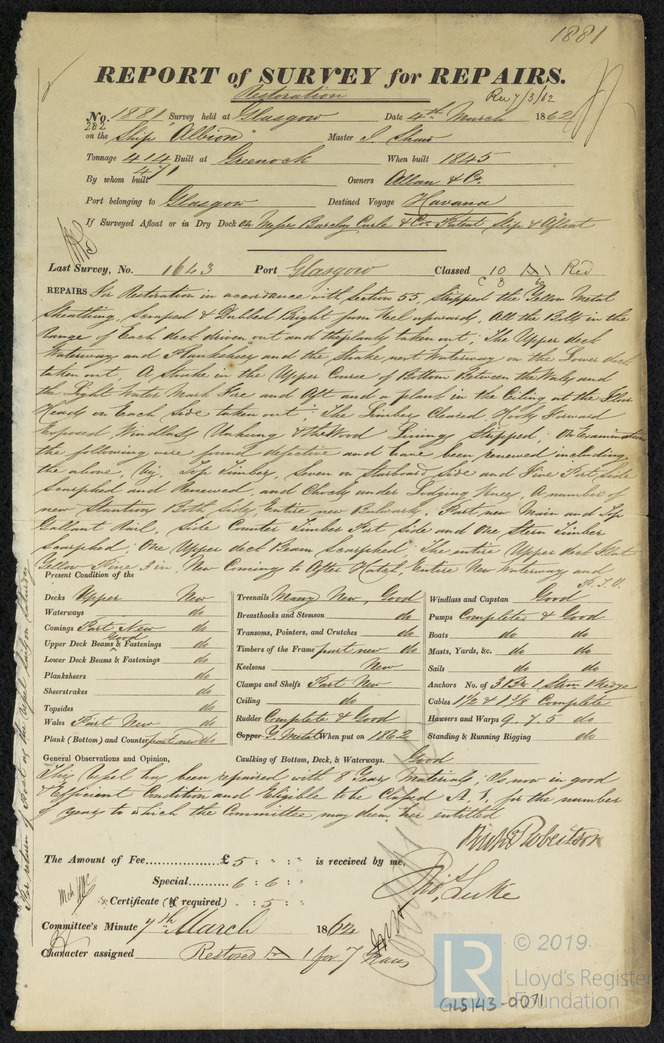 1881
REPORT of SURVEY for REPAIRS.
Restoration
Rec 7/3/62
No. 1881 Survey held at Glasgow Date 4th March 1862
282
on the Ship "Albion" Master J. Shaw
Tonnage 414 Built at Greenock When built 1845
471
By whom built Owners Allan & Co.
Port belonging to Glasgow Destined Voyage Havana
If Surveyed Afloat or in Dry Dock On Messrs Barclay Curle & Co. Patent Slip & Afloat
Last Survey, No. 1643 Port Glasgow Classed 10 A Red
REPAIRS For Restoration in accordance with Section 55, Stripped the Yellow Metal
Sheathing, Scraped & Dubbed Bright from Keel upwards, All the Bolts in the
Range of Each deck driven out and the planks taken out; The Upper deck
Waterways and Planksheer and the Strake next Waterway on the Lower deck
taken out, A Strake in the Upper Course of Bottom Between the Wales and
the Light Water Mark Fore and Aft and a plank in the Ceiling at the Floor
Heads on Each Side taken out; The Limbers Cleared, Hooks Forward
Exposed, Windlass Unhung & the Wood Lining Stripped; On Examination
the following were found defective and have been renewed including
the above, Viz. Top Timbers, Seven on Starboard Side and Five Port Side
Scarphed and Renewed, and Chocks under Lodging Knees, A number of
new Stantions Both Sides, Entire new Bulwarks, Part new Main and Top
Gallant Rail, Side Counter Timber Port Side and One Stern Timber
Scarphed; One Upper deck Beam Scarphed, The entire Upper deck Flat
Yellow Pine 3 in, New Coming to After Hatch, Entire New Waterway and
P.T.O.
Present Condition of the
Decks Upper New
Waterways do
Comings Part New do
Upper Deck Beams & Fastenings Good do
Lower Deck Beams & Fastenings do
Planksheers do
Sheerstrakes do
Topsides do
Wales Part New do
Plank (Bottom) and Counter part new do
Treenails Many New, Good
Breasthooks and Stemson do
Transoms, Pointers, and Crutches do
Timbers of the Frame part new do
Keelsons New
Clamps and Shelfs Part New
Ceiling do
Rudder Complete & Good
Copper Y. Metal When put on 1862
Windlass and Capstan Good
Pumps Complete & Good
Boats do do
Masts, Yards, &c. do do
Sails do do
Anchors No. of 3 Br. 1 Strm. & Kedge
Cables 1½ & 1¼ Complete
Hawsers and Warps 9. 7. 5 do
Standing & Running Rigging do
General Observations and Opinion, Caulking of Bottom, Deck, & Waterways. Good
This Vessel has been repaired with 8 Years Materials, Is now in good
& Efficient Condition and Eligible to be Classed A. 1. for the number
of years to which the Committee may deem her entitled
Robertson
The Amount of Fee £ 5 : " : " is received by me,
Special 6 : 6 : "
Certificate (if required) : 5 : "
Thos. Luke
Committee's Minute 7th March 1862
Character assigned Restored A 1 for 7 Years
© 2019
LR
Lloyd's Register
Foundation
GLS143-0071